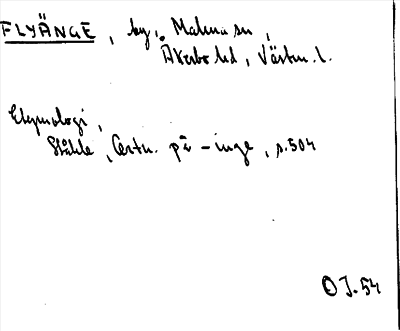 FLYÄNGE, by, Malma sn,
Åkerbo hd, Västm. l.
Etymologi,
Ståhle, Ortn. på -inge, s.504
OJ.54